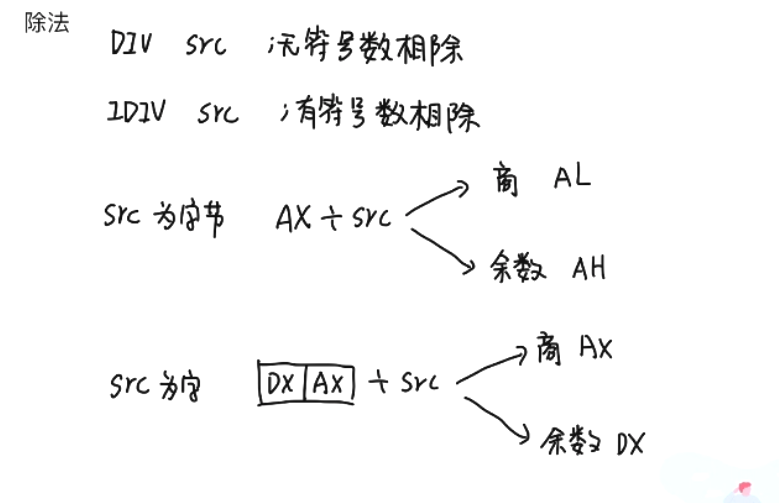 除法
DIV src ;无符号数相除
IDIV src ;有符号数相除
商 AL
src 为字节 AX ÷ src
余数 AH
商 AX
src 为字 DX AX ÷ src
余数 DX